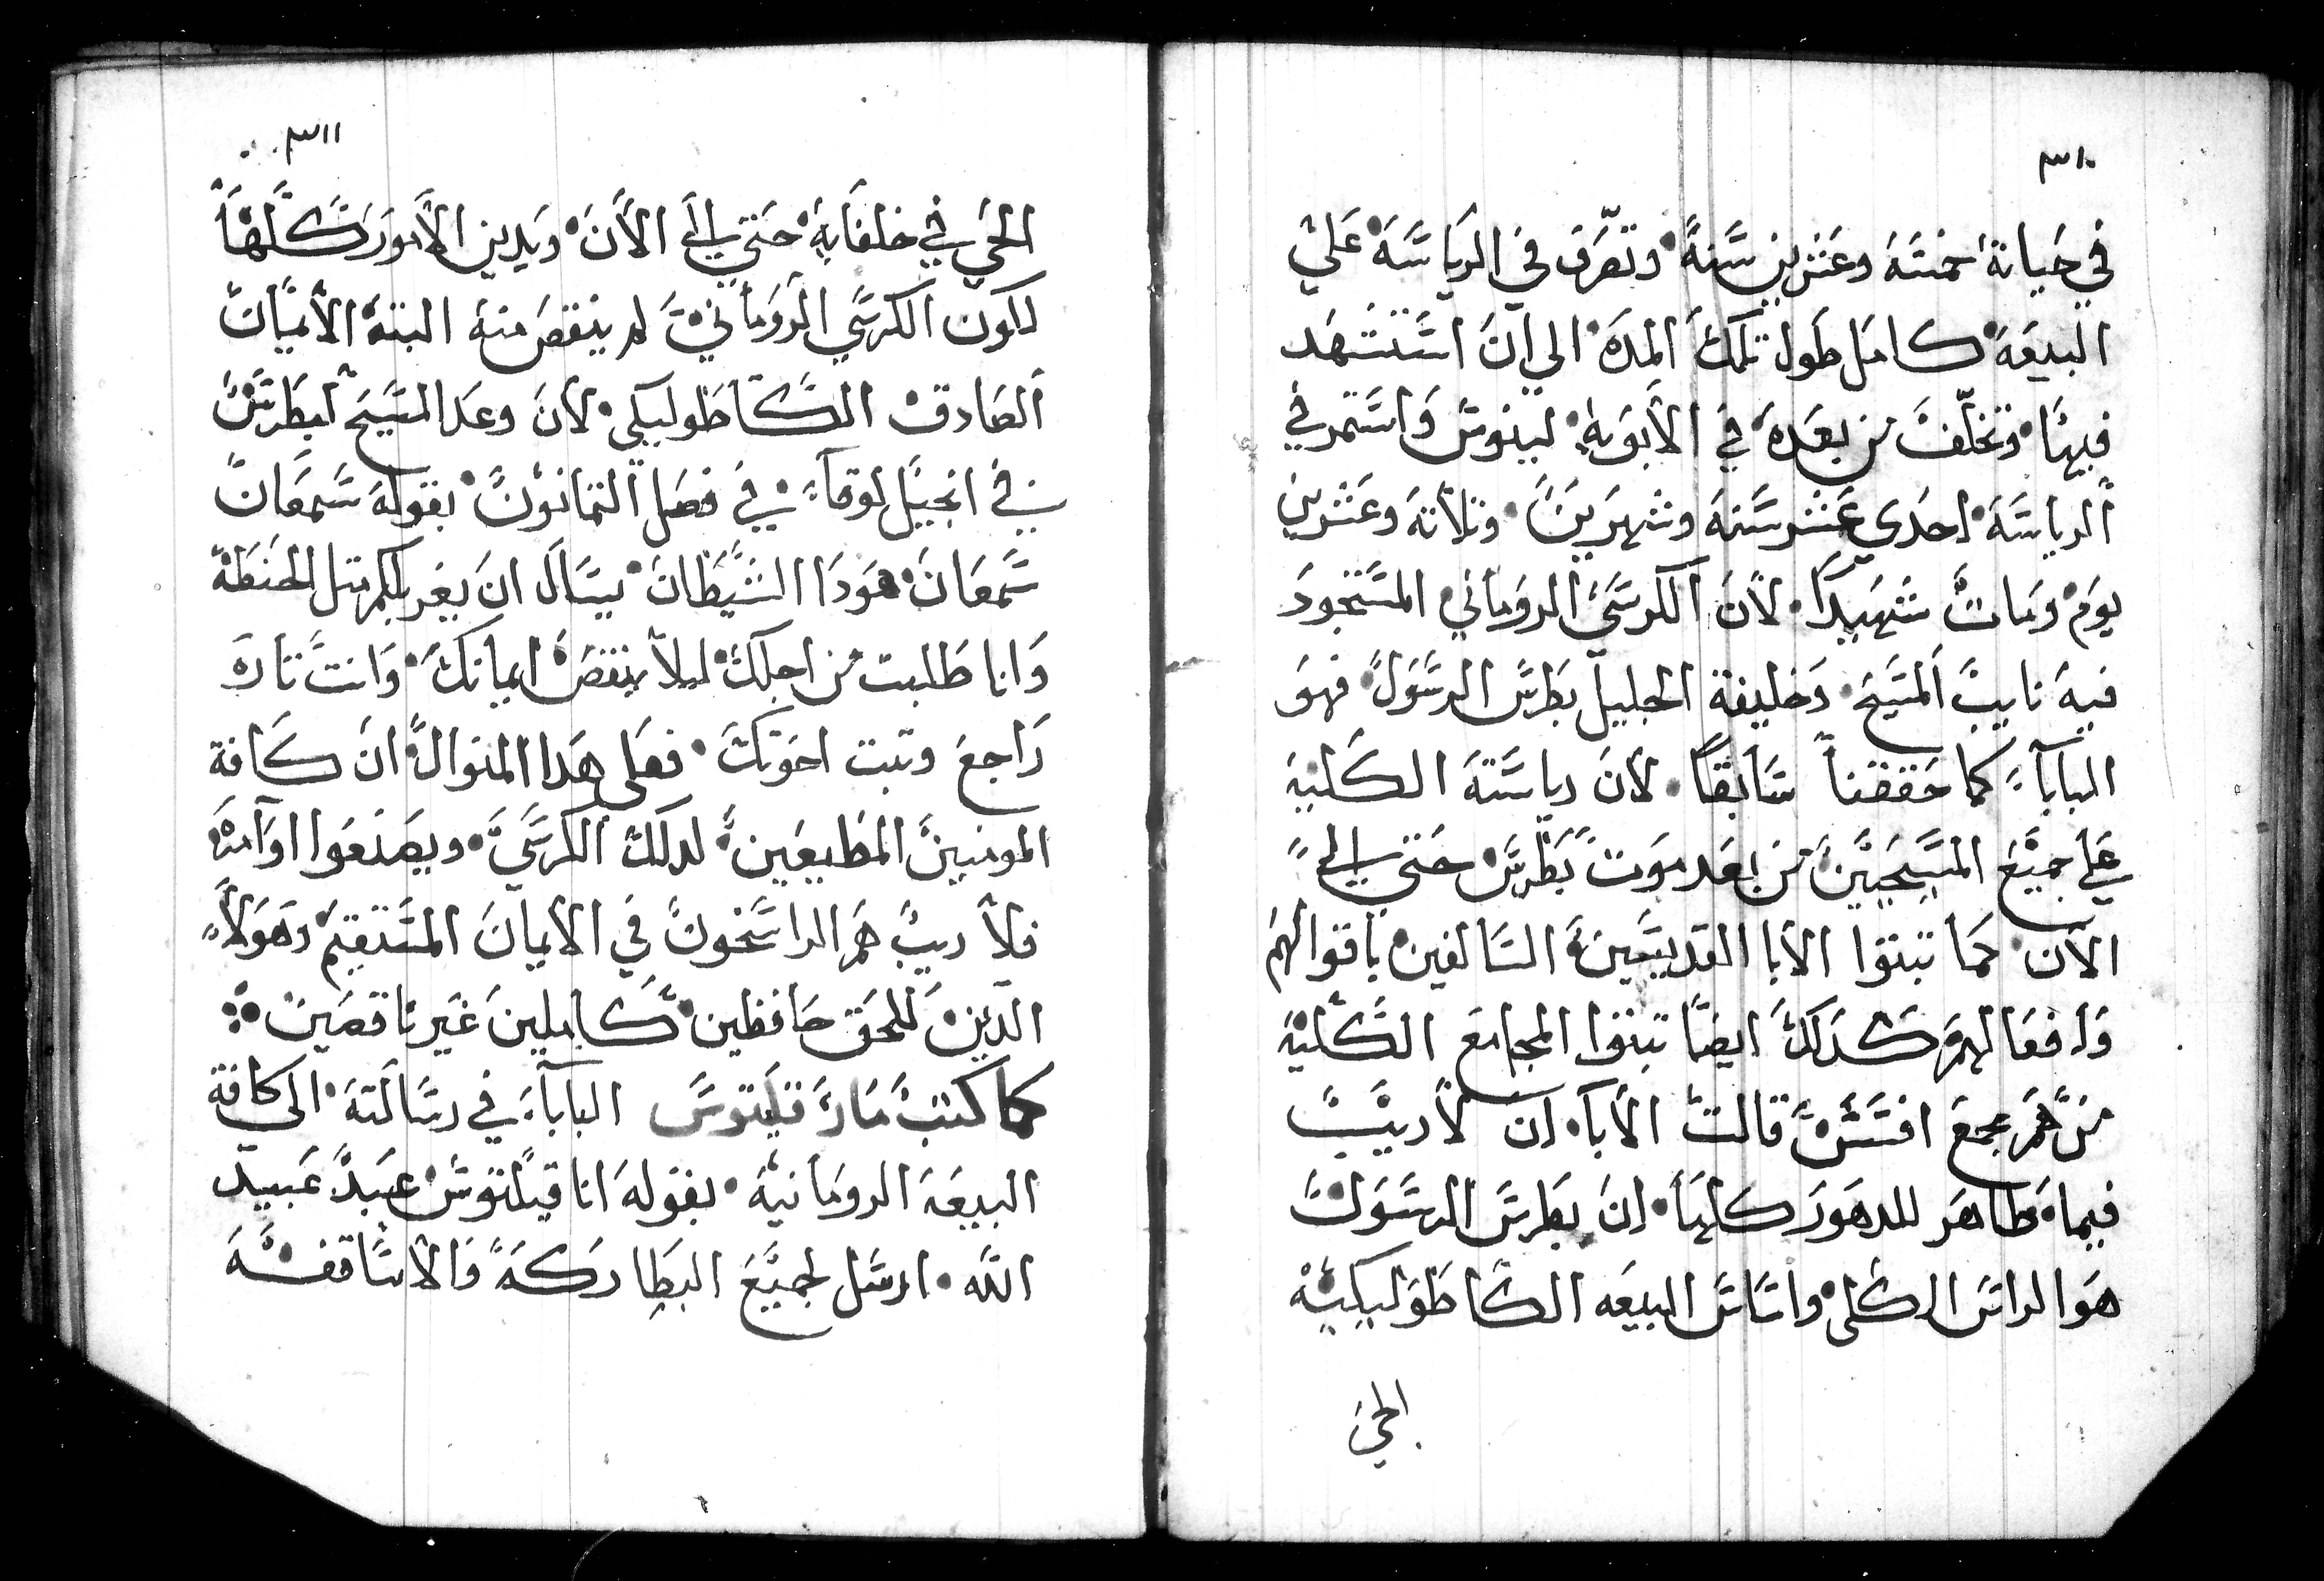 ٣١٠
في حياته خمسة وعشرين سنة وتصرف في الرياسة علي
البيعة كامل طول تلك المدة الي ان استشهد
فيها وتخلّف من بعده في الأبوية لينوس واستمر في
الرياسة احدي عشر سنة وشهرين وثلاثة وعشرين
يوم ومات شهيدا لأن الكرسي الروماني المسجود
فيه نايب المسيح وخليفة الجليل بطرس الرسول فهو
البابا كما حققنا سابقا لأن رياسته الكلية
علي جميع المسيحيين من بعد موت بطرس حتي الي
الآن كما تبتوا الأبا القديسين السالفين باقوالهم
وافعالهم كدلك ايضا تبتوا المجامع الكلية
من هم مجمع افسس قالت الأبا ان لا ريب
فيما ظاهر للدهور كلها ان بطرس الرسول
هو الراس الكلي واساس البيعه الكاطوليكية
الحي
٣١١
الحي في خلفايه حتي الي الآن ويدين الأمور كلها
لكون الكرسي الروماني لم ينقص منه البتة الأيمان
الصادق الكاطوليكي لأن وعد المسيح لبطرس
في انجيل لوقا في فصل التمانون بقوله سمعان
سمعان هودا الشيطان يسال ان يغربلكم متل الحنطة
وانا طلبت من اجلك ليلا ينقص ايمانك وانت تاره
راجع وتبت اخوتك فعلي هدا المنوال ان كافة
المومنين المطيعين لدلك الكرسي ويصنعوا اوامره
فلا ريب هم الراسخون في الأيمان المستقيم وهولاء
الدين للحق حافظين كاملين غير ناقصين
كما كتب مار قيلتوس البابا في رسالته الي كافة
البيعة الرومانية بقوله انا قيلتوس عبد عبيد
الله ارسل لجميع البطاركة والأساقفة